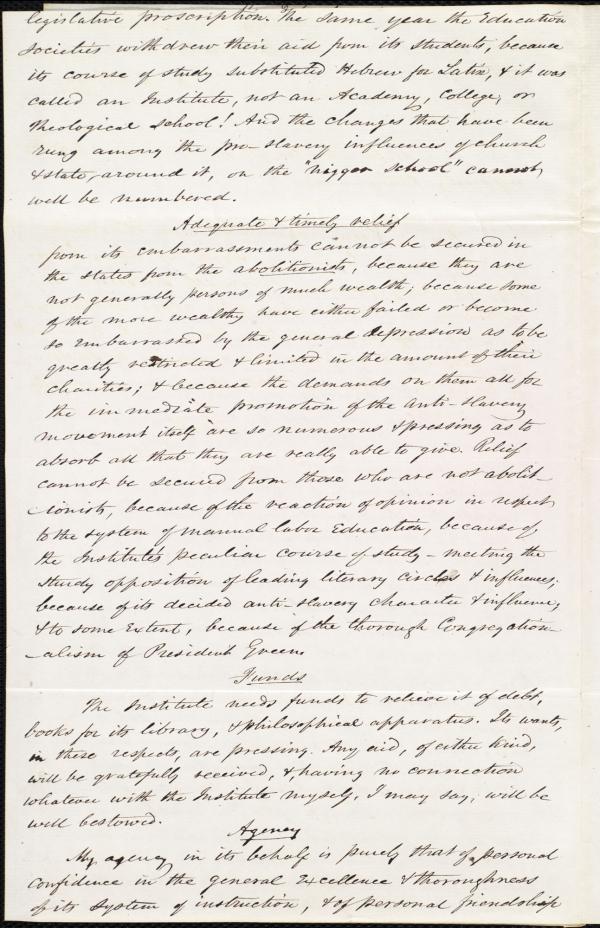 legislative proscription. The same year the Education
Societies withdrew their aid from its students, because
its course of study substituted Hebrew for Latin, & it was
called an Institute, not an Academy, College, or
Theological School! And the changes that have been
rung among the pro-slavery influences of church
& state, around it, on the "nigger school" cannot
well be numbered.
Adequate & timely relief
from its embarrassments cannot be secured in
the states from the abolitionists, because they are
not generally persons of much wealth; because some
of the more wealthy have either failed or become
so embarrassed by the general depression as to be
greatly restricted & limited in the amount of their
charities; & because the demands on them all for
the immediate promotion of the Anti-Slavery
movement itself are so numerous & pressing as to
absorb all that they are really able to give. Relief
cannot be secured from those who are not abolit-
-ionists, because of the reaction of opinion in respect
to the system of manual labor Education, because of
the Institute's peculiar course of study - meeting the
sturdy opposition of leading literary circles & influences;
because of its decided anti-slavery character & influence,
& to some extent, because of the thorough Congregation-
-alism of President Green.
Funds
The Institute needs funds to relieve it of debt,
books for its library, & philosophical apparatus. Its wants,
in these respects, are pressing. Any aid, of either kind,
will be gratefully received, & having no connection
whatever with the Institute myself, I may say, will be
well bestowed.
Agency
My agency in its behalf is purely that of personal
confidence in the general excellence & thoroughness
of its system of instruction, & of personal friendship